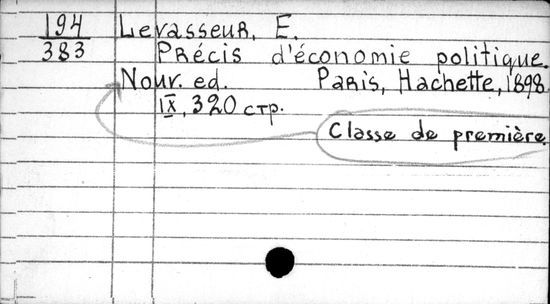 194 Levasseur, E.
383 Précis d'économie politique.
Nour. ed. Paris, Hachette, 1898
IX, 320 стр.
Classe de première.